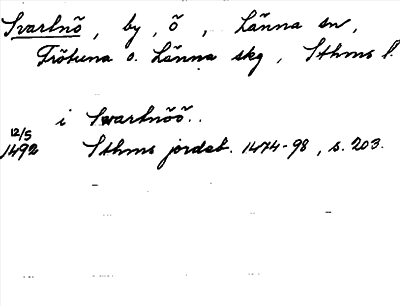 Svartnö, by, ö, Länna sn,
Frötuna o. Länna skg, Sthms l.
i Swartnöö..
12/5
1492 Sthms jordeb. 1474-98, s. 203.